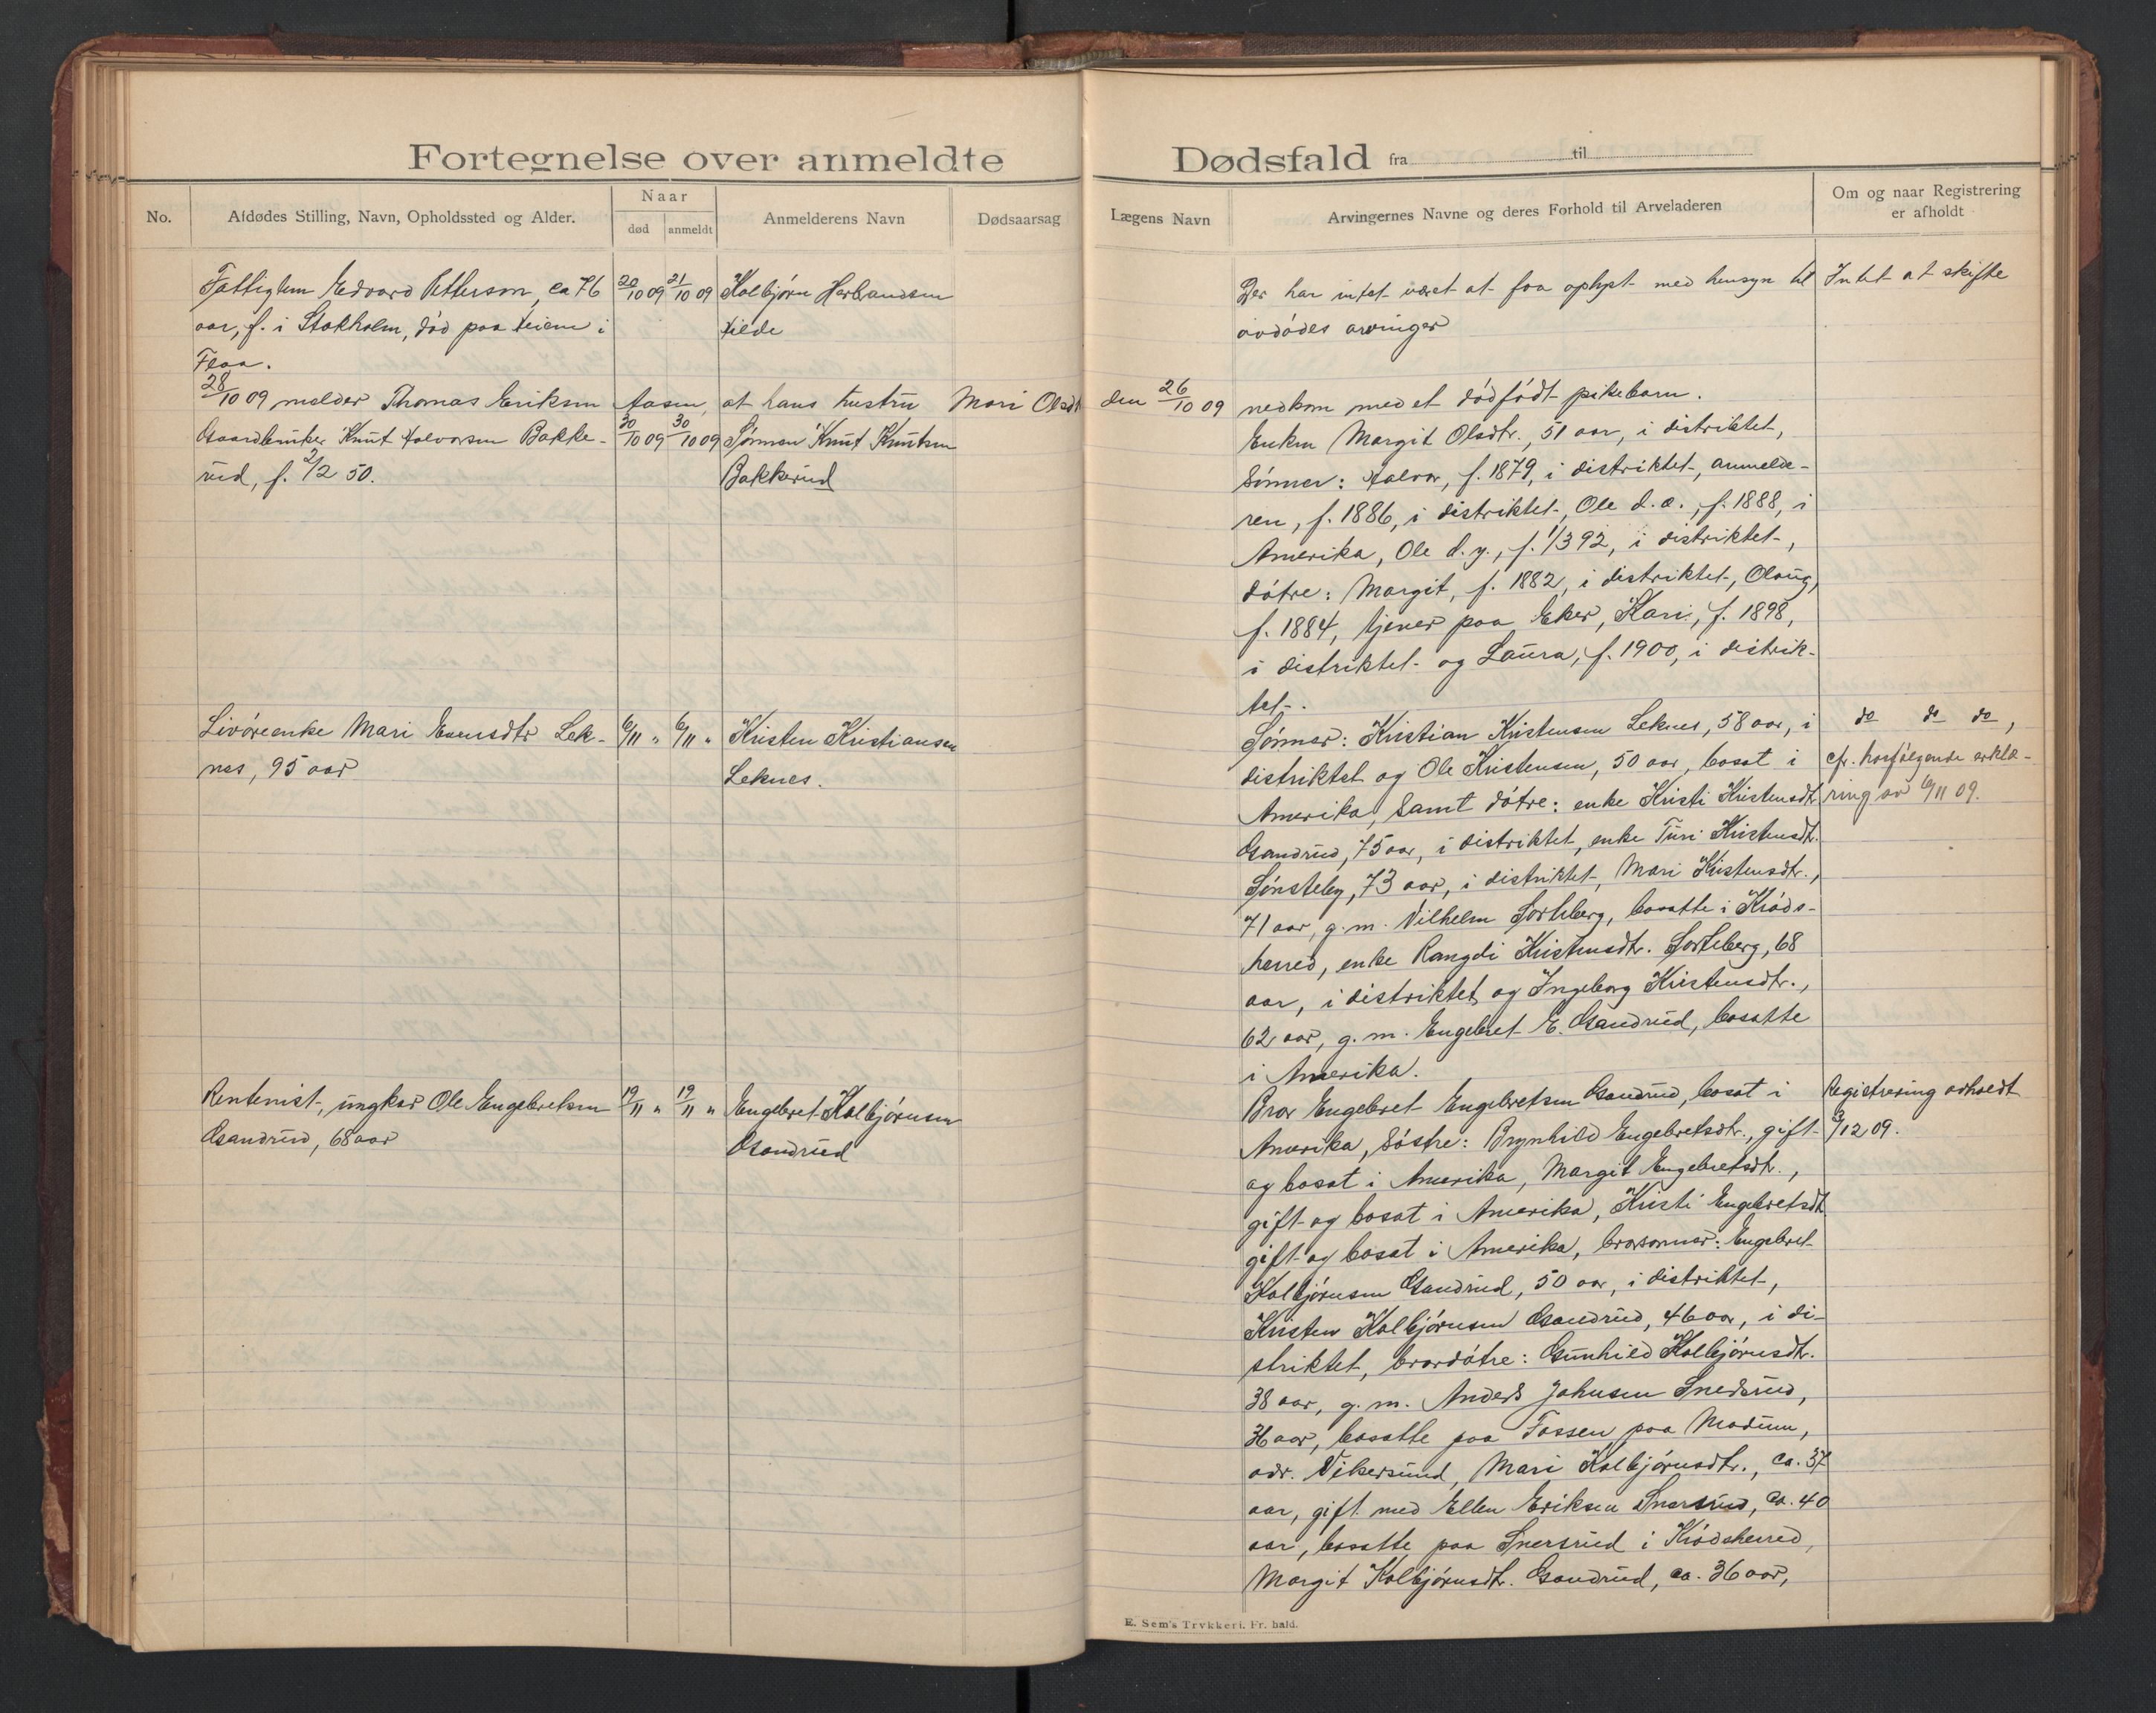 Fortegnelse over anmeldte Dødsfald fra til
No.
Afdødes Stilling, Navn, Opholdssted og Alder.
Naar
død
anmeldt
Anmelderens Navn
Dødsaarsag
Lægens Navn
Arvingernes Navne og deres Forhold til Arveladeren
Om og naar Registrering
er afholdt
Fattiglem Edvard Petterson, ca 76
aar, f. i Stokholm, død paa Heiene i
Flaa.
20/10 09
21/10 09
Kolbjørn Herbrandsen
Hilde
Der har intet været at faa oplyst med hensyn til
avdødes arvinger
Intet at skifte
28/10 09 melder Thomas Eriksen Aasen, at hans hustru Mari Olsdt den 26/10 09 nedkom med et dødfødt pikebarn.
Gaardbruker Knut Halvorsen Bakke-
rud, f. 2/2 50.
30/10 09
30/10 09
Sønnen Knut Knutsen
Bakkerud
Enken Margit Olsdtr., 51 aar, i distriktet,
Sønner: Halvor, f. 1879, i distriktet, anmelde-
ren, f. 1886, i distriktet, Ole d. æ., f. 1888, i
Amerika, Ole d. y., f. 1/3 92, i distriktet,
døtre: Margit, f. 1882, i distriktet, Olaug,
f. 1884, tjener paa Eker, Kari, f. 1898,
i distriktet og Laura, f. 1900, i distrik-
tet.
Livøreenke Mari Evensdtr Lek-
nes, 95 aar
6/11 "
6/11 "
Kristen Kristiansen
Leknes.
Sønner: Kristian Kristensen Leknes, 58 aar, i
distriktet og Ole Kristensen, 50 aar, bosat i
Amerika, samt døtre: enke Kristi Kristensdt
Gandrud, 75 aar, i distriktet, enke Turi Kristensdt.
Sønsteby, 73 aar, i distriktet, Mari Kristensdtr.,
71 aar, g. m. Vilhelm Sorteberg, bosatte i Krøds-
herred, enke Rangdi Kristensdtr. Sorteberg, 68
aar, i distriktet og Ingeborg Kristensdtr.,
62 aar, g. m. Engebret E. Gandrud, bosatte
i Amerika.
do do do,
cfr. hosfølgende erklæ-
ring av 6/11 09.
Rentenist, ungkar Ole Engebretsen
Gandrud, 68 aar
19/11 "
19/11 "
Engebret Kolbjørnsen
Gandrud
Bror Engebret Engebretsen Gandrud, bosat i
Amerika, søstre: Brynhild Engebretsdtr., gift
og bosat i Amerika, Margit Engebretsdt.,
gift og bosat i Amerika, Kristi Engebretsdt
gift og bosat i Amerika, brorsønner: Engebret
Kolbjørnsen Gandrud, 50 aar, i distriktet,
Kristen Kolbjørnsen Gandrud, 46 aar, i di-
striktet, brordøtre: Gunhild Kolbjørnsdt.
38 aar, g. m. Anders Johnsen Snersrud,
36 aar, bosatte paa Fossen paa Modum,
adr. Vikersund, Mari Kolbjørnsdtr., ca. 37
aar, gift med Ellen Eriksen Snersrud, ca. 40
aar, bosatte paa Snersrud i Krødsherred,
Margit Kolbjørnsdt. Gandrud, ca. 36 aar,
Registrering avholdt
3/12 09.
E. Sem's Trykkeri, Fr. hald.